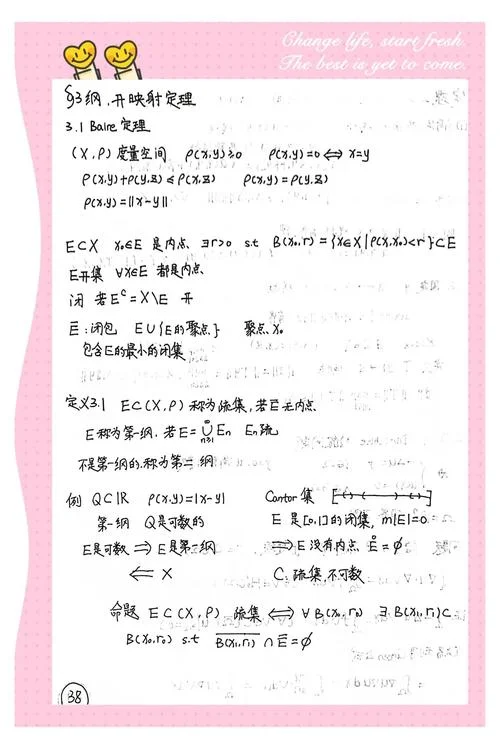 Change life, start fresh.
The best is yet to come.
§3纲,开映射定理
3.1 Baire 定理
(X,ρ) 度量空间 ρ(x,y)≥0 ρ(x,y)=0 ⟺ x=y
ρ(x,y)+ρ(y,z)≤ρ(x,z) ρ(x,y)=ρ(y,z)
ρ(x,y)=||x-y||
E⊂X x₀∈E 是内点 ∃r>0 s.t B(x₀,r)={x∈X|ρ(x,x₀)<r}⊂E
E开集 ∀x∈E 都是内点
闭 若Eᶜ=X\E 开
Ē:闭包 E∪{E的聚点} 聚点 x₀
包含E的最小的闭集
定义3.1 E⊂(X,ρ)称为疏集,若Ē无内点
E称为第一纲,若E=⋃Eₙ Eₙ疏
不是第一纲的,称为第二纲
例 Q⊂ℝ ρ(x,y)=|x-y| Cantor集
第一纲 Q是可数的 E是[0,1]的闭集,m|E|=0
E是可数 ⟹ E是第一纲 ⟹ E没有内点 E̊=∅
⟸ X C:疏集,不可数
命题 E⊂(X,ρ) 疏集 ⟺ ∀B(x₀,r₀) ∃B(x₁,r₁)⊂
B(x₀,r₀) s.t B̅(̅x̅₁̅,̅r̅₁̅)̅ ∩ Ē=∅
38